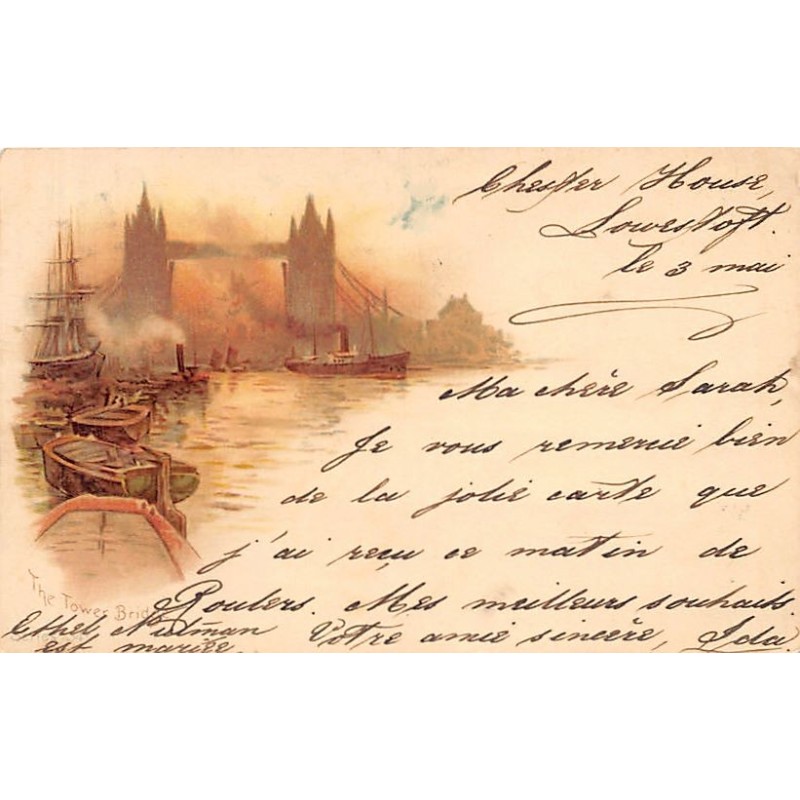 Chester House,
Lowestoft.
le 3 mai
Ma chère Sarah,
Je vous remercie bien
de la jolie carte que
j'ai reçu ce matin de
Roulers. Mes meilleurs souhaits.
Votre amie sincère, Ida.
The Tower Brid
Ethel
est mariée